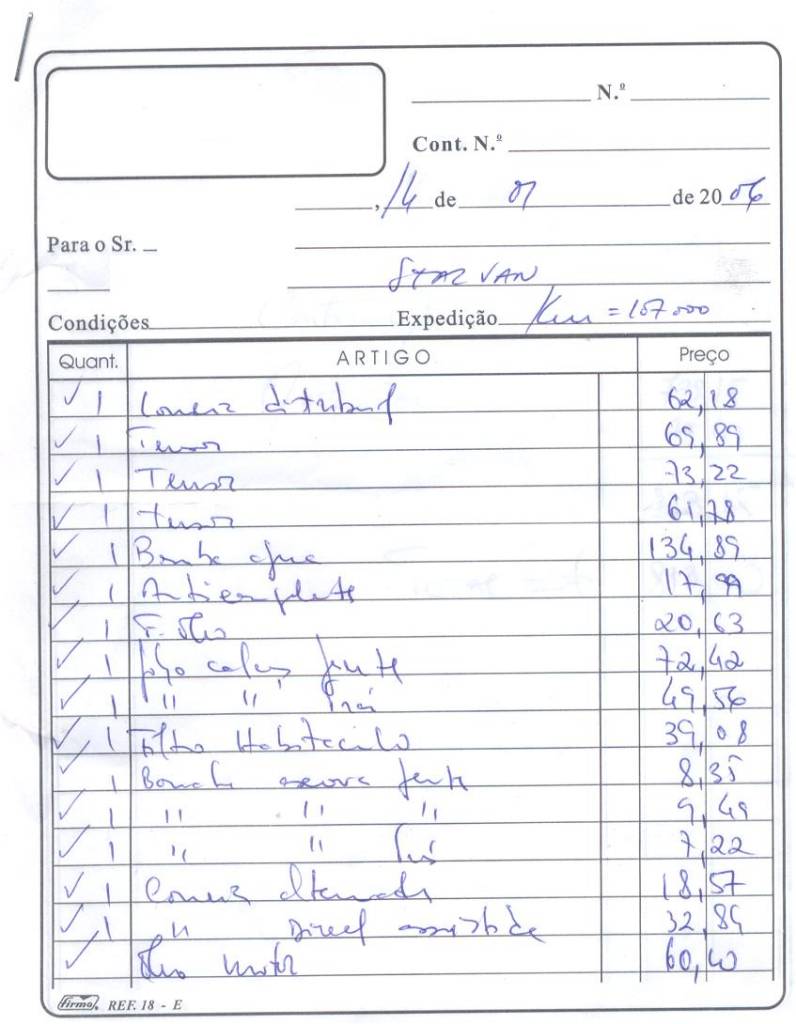 N.º
Cont. N.º
, 14 de 07 de 2006
Para o Sr.
STARVAN
Condições Expedição Km = 107.000
Quant. ARTIGO Preço
✓ 1 Correia distribuiç 62,18
✓ 1 Tensor 69,89
✓ 1 Tensor 73,22
✓ 1 Tensor 61,78
✓ 1 Bomba agua 134,89
✓ 1 Anticongelante 17,99
✓ 1 F. óleo 20,63
✓ 1 Jogo calços frente 72,42
✓ 1 " " trás 49,56
✓ 1 Filtro Habitaculo 39,08
✓ 1 Borracha escova frente 8,35
✓ 1 " " " 9,49
✓ 1 " " trás 7,22
✓ 1 Correia alternador 18,57
✓ 1 " Direcç assistida 32,89
✓ óleo motor 60,40
firmo, REF. 18 - E